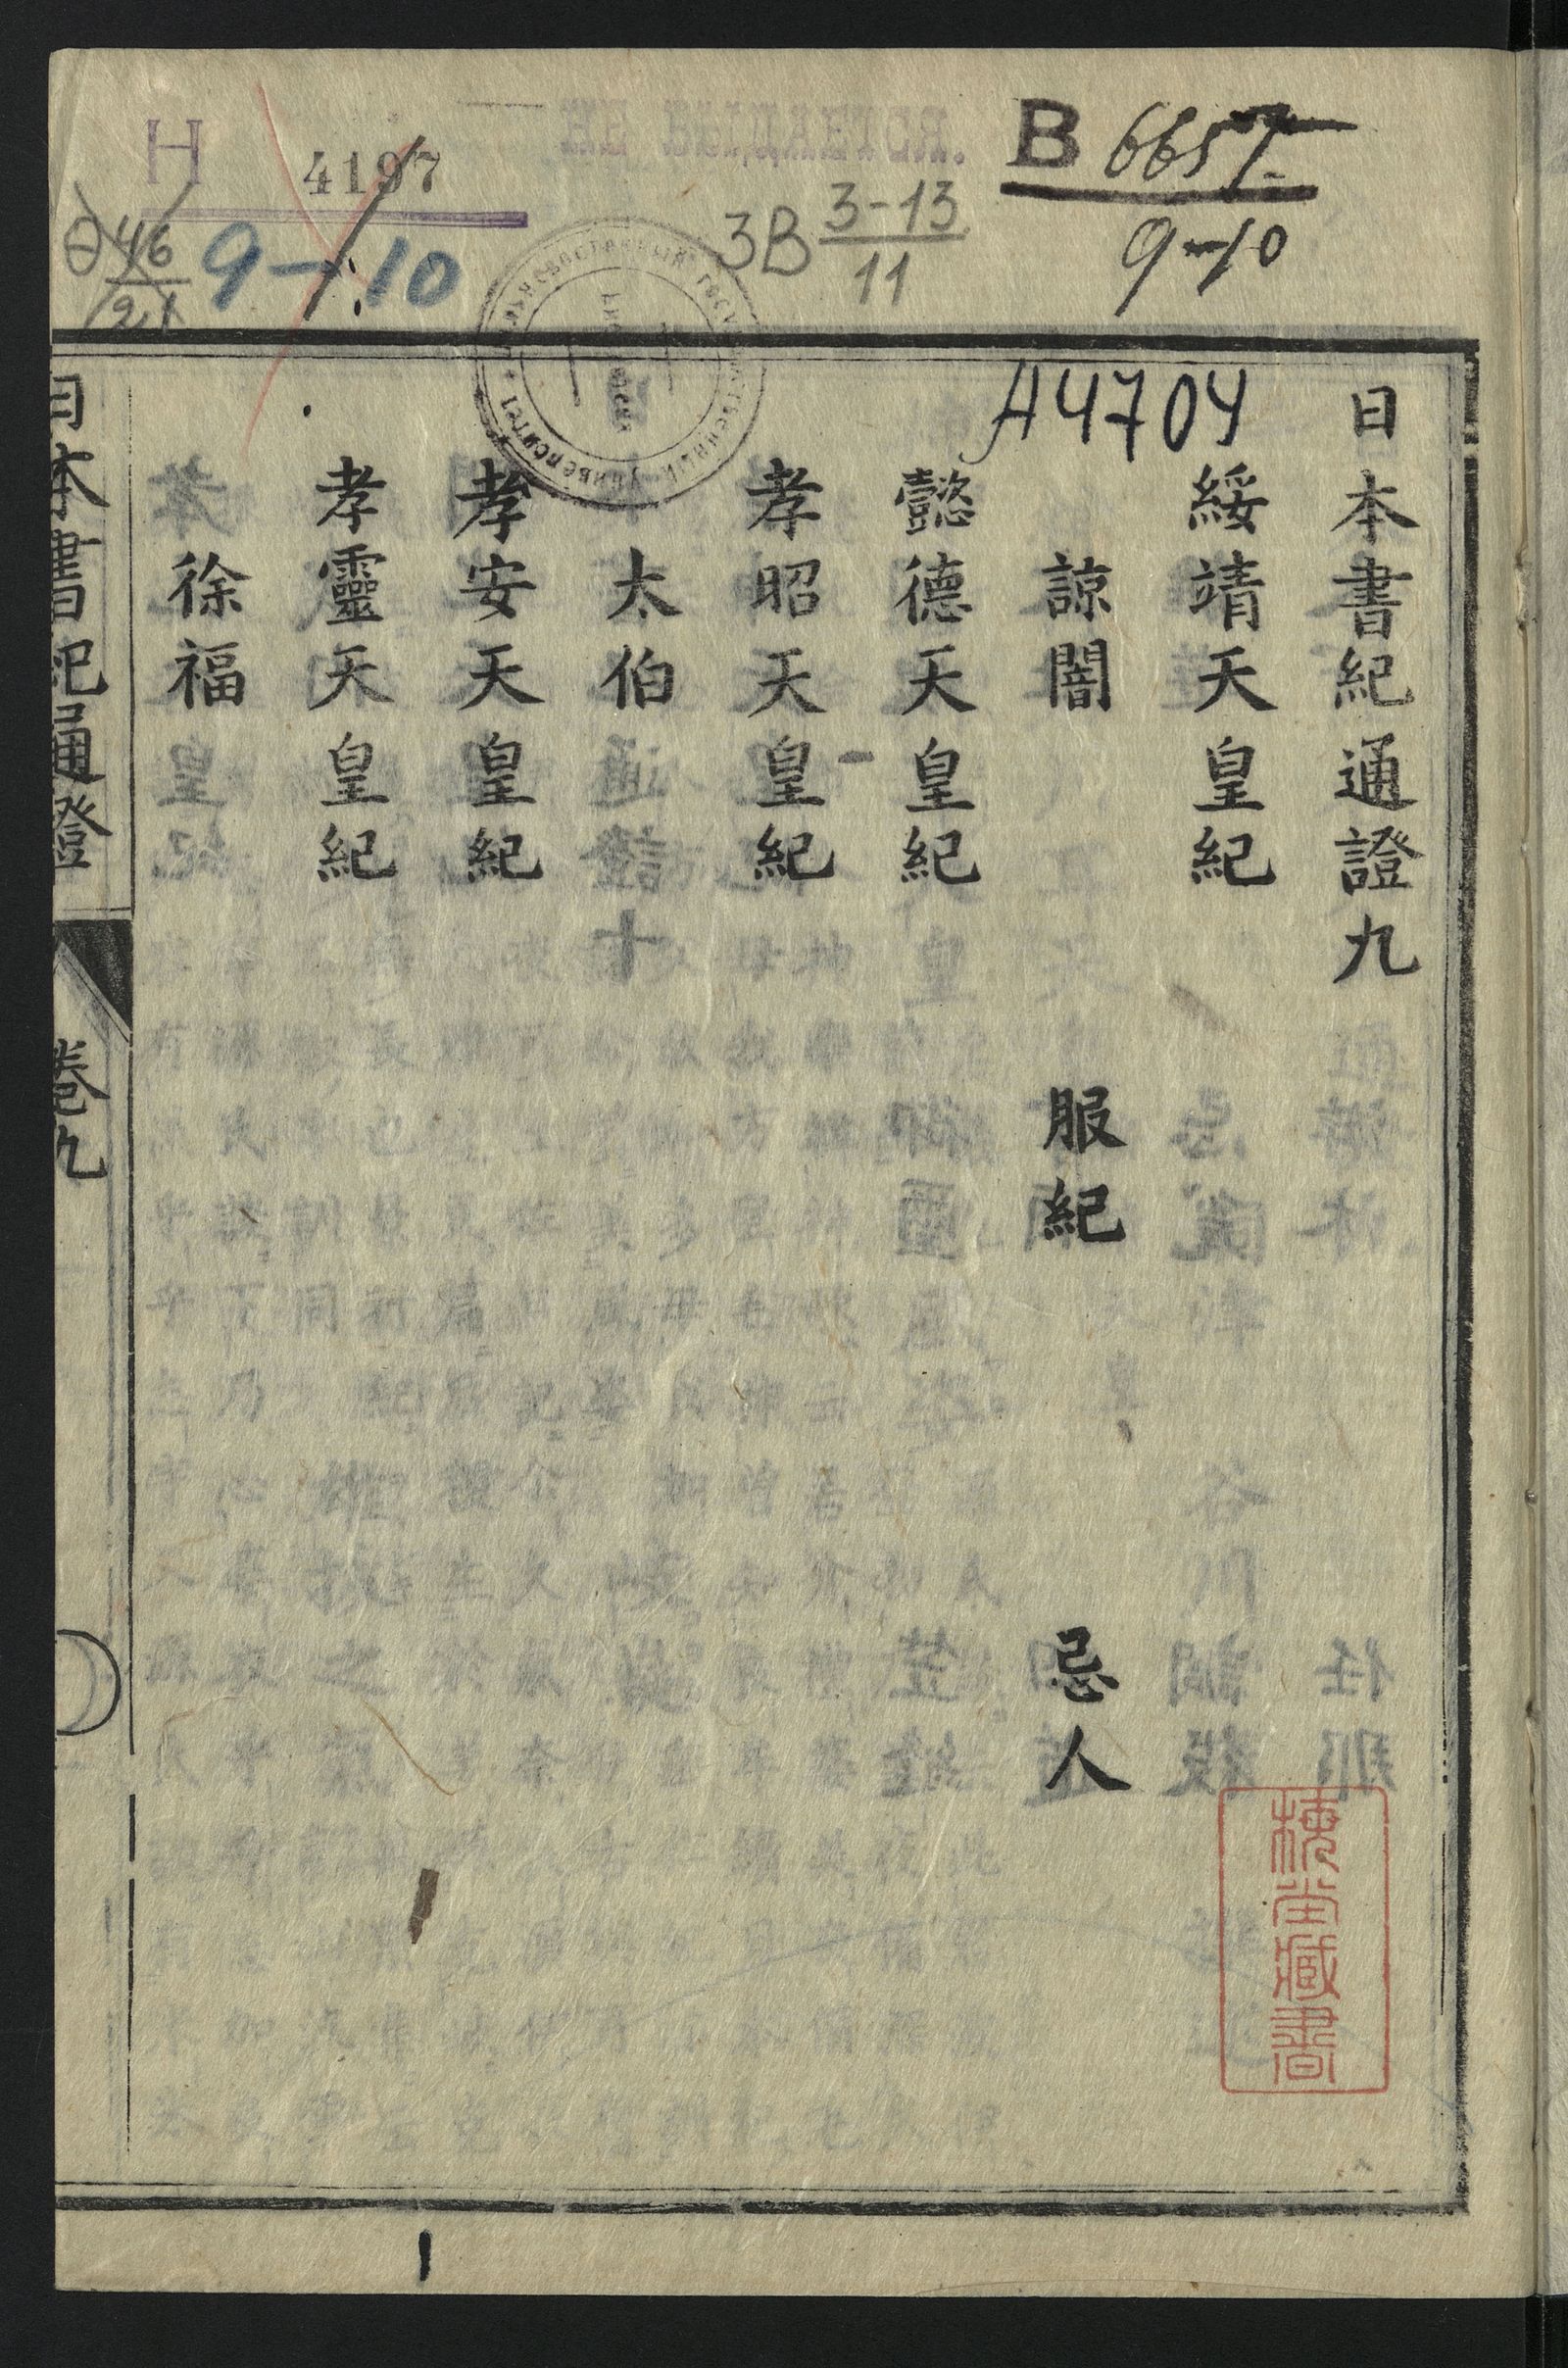 H 4197
46
21
9-10
3В 3-13
11
B 6657
9-10
А4704
日本書紀通證九
綏靖天皇紀
諒闇 服紀 忌人
懿德天皇紀
孝昭天皇紀
太伯
孝安天皇紀
孝靈天皇紀
徐福
日本書紀通證 卷九
藏書